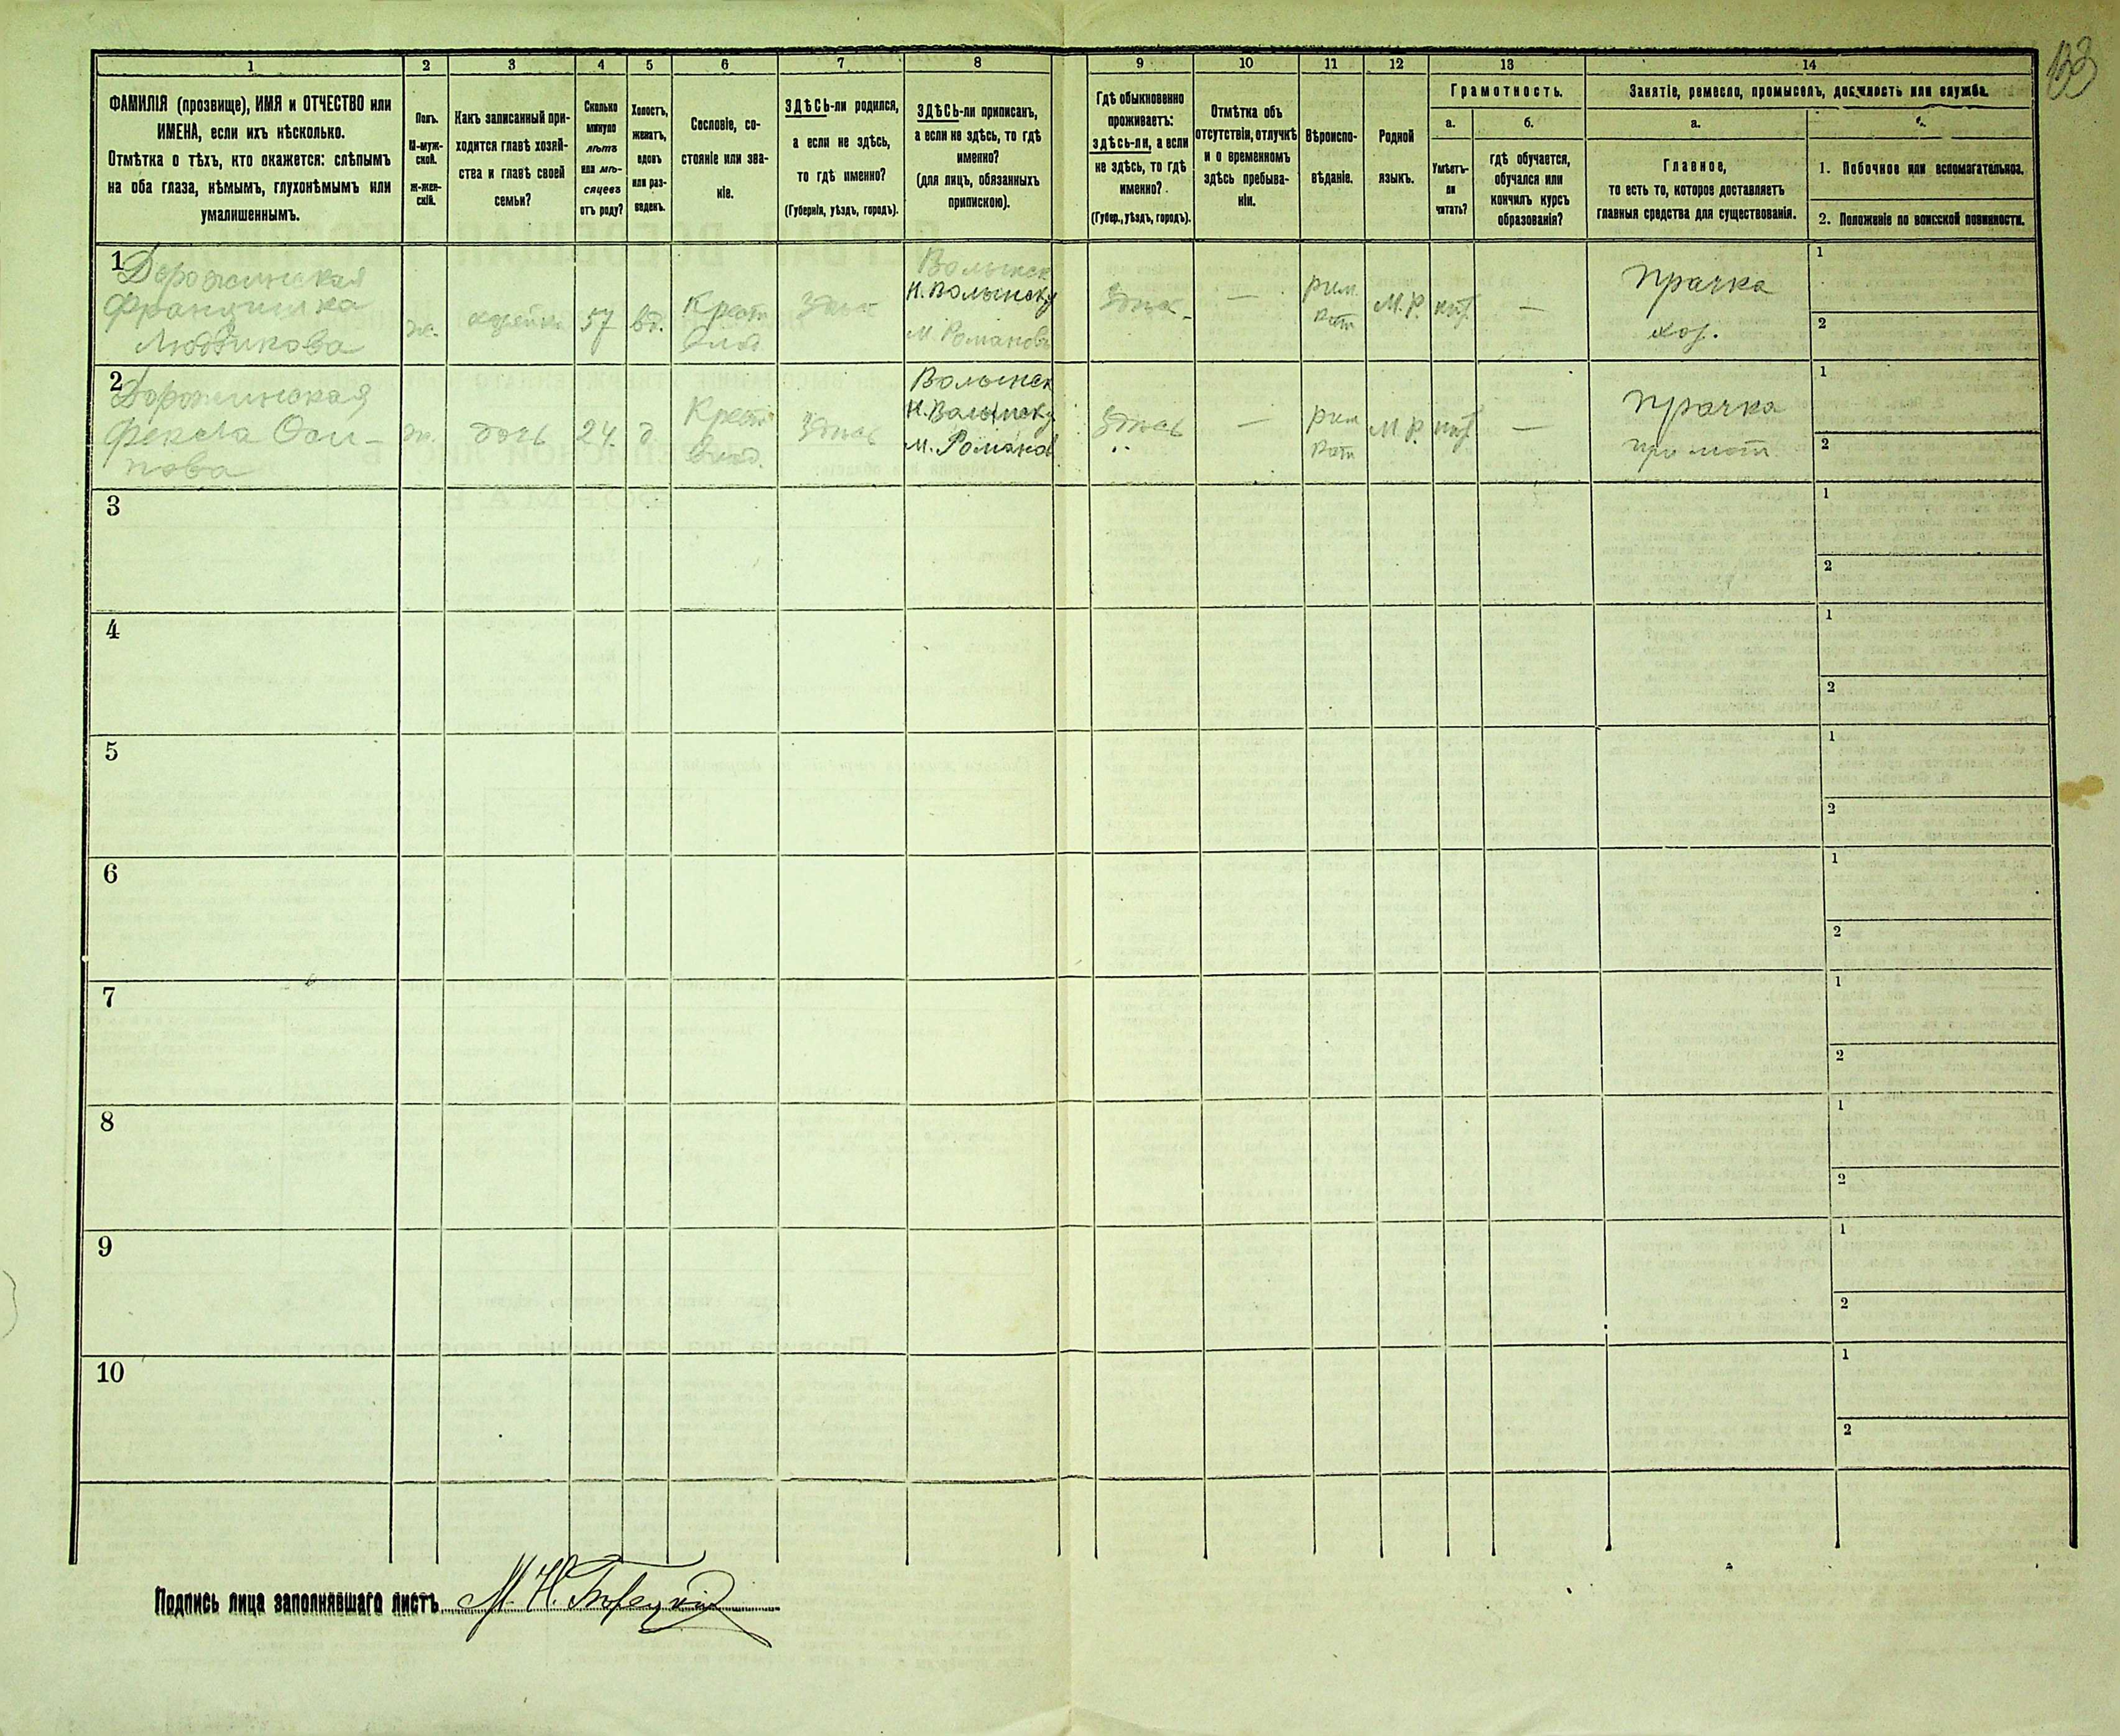 1 2 3 4 5 6 7 8 9 10 11 12 13 14
ФАМИЛІЯ (прозвище), ИМЯ и ОТЧЕСТВО или
ИМЕНА, если ихъ нѣсколько.
Отмѣтка о тѣхъ, кто окажется: слѣпымъ
на оба глаза, нѣмымъ, глухонѣмымъ или
умалишеннымъ.
Полъ.
М-муж-
ской.
ж-жен-
скій.
Какъ записанный при-
ходится главѣ хозяй-
ства и главѣ своей
семьи?
Сколько
минуло
лѣтъ
или мѣ-
сяцевъ
отъ роду?
Холостъ,
женатъ,
вдовъ
или раз-
веденъ.
Сословіе, со-
стояніе или зва-
ніе.
ЗДѢСЬ-ли родился,
а если не здѣсь,
то гдѣ именно?
(Губернія, уѣздъ, городъ).
ЗДѢСЬ-ли приписанъ,
а если не здѣсь, то гдѣ
именно?
(для лицъ, обязанныхъ
припискою).
Гдѣ обыкновенно
проживаетъ:
здѣсь-ли, а если
не здѣсь, то гдѣ
именно?
(Губер., уѣздъ, городъ).
Отмѣтка объ
отсутствіи, отлучкѣ
и о временномъ
здѣсь пребыва-
ніи.
Вѣроиспо-
вѣданіе.
Родной
языкъ.
Грамотность.
а.
Умѣетъ-
ли
читать?
б.
гдѣ обучается,
обучался или
кончилъ курсъ
образованія?
Занятіе, ремесло, промыселъ, должность или служба.
а.
Главное,
то есть то, которое доставляетъ
главныя средства для существованія.
1. Побочное или вспомагательное.
2. Положеніе по воинской повинности.
1
Дорожинская
Францишка
Людвикова
ж.
57
вд.
Крест
здѣсь
Волынск
Н. Волынску
М. Романовъ
здѣсь
—
рим.
кат
М.Р.
—
Прачка
хоз.
1
2
2
Дорожинская
Фекла Оси-
пова
ж.
дочь
24.
д.
Крест
здѣсь
Волынск
Н. Волынску
м. Романов
здѣсь
—
рим
кат
М.Р.
—
Прачка
1
2
3
1
2
4
1
2
5
1
2
6
1
2
7
1
2
8
1
2
9
1
2
10
1
2
Подпись лица заполнявшаго листъ